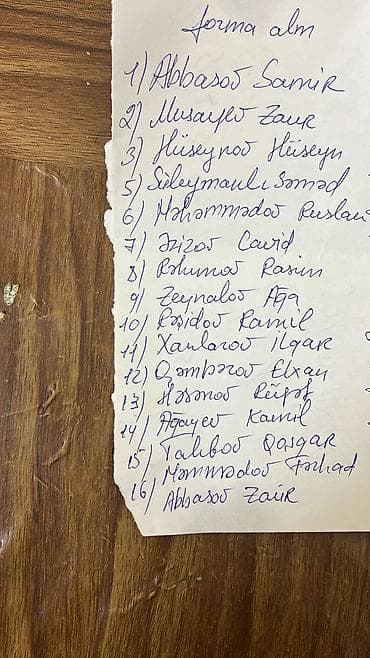 forma alm
1) Abbasov Samir
2) Musayev Zaur
3) Hüseynov Hüseyn
5) Süleymanlı Səməd
6) Məhəmmədov Ruslan
7) Əzizov Cavid
8) Rəhimov Rasim
9) Zeynalov Ağa
10) Rəşidov Ramil
11) Xanlarov Ilgar
12) Qəmbərov Elxan
13) Həsənov Rüfət
14) Ağayev Kamil
15) Talıbov Qoşqar
Məmmədov Fərhad
16) Abbasov Zaur